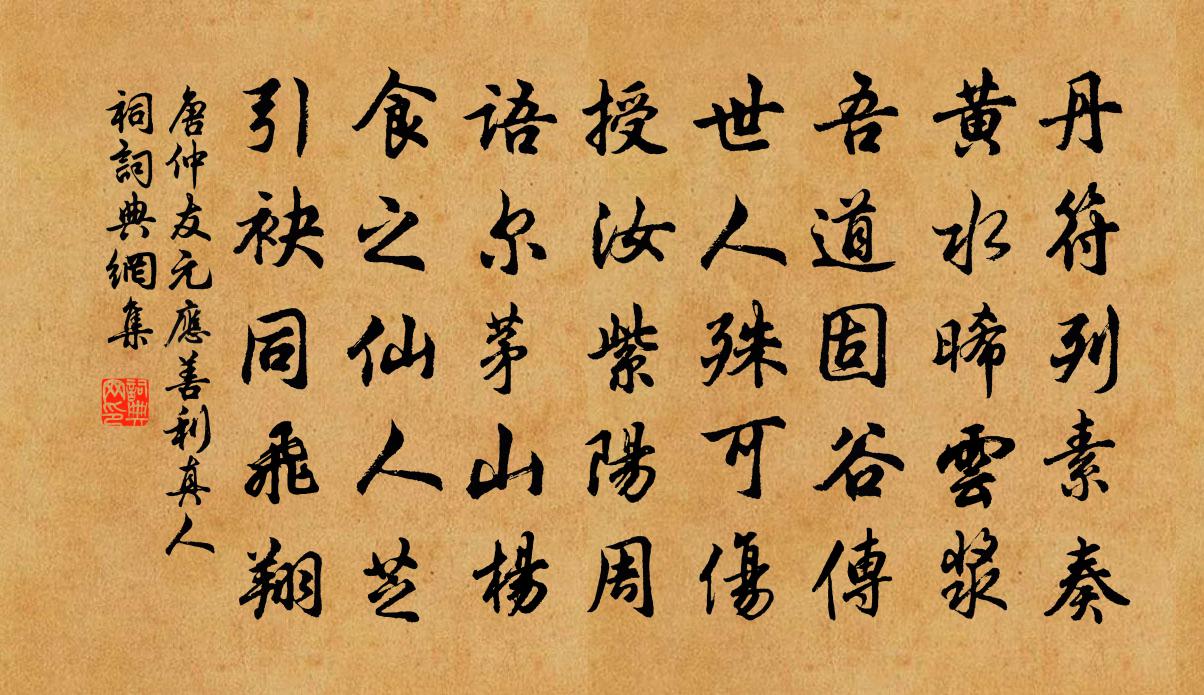 丹符列素奏
黃水晞雲漿
吾道固谷傳
世人殊可傷
授汝紫陽周
語尔茅山楊
食之仙人芝
引袂同飛翔
唐仲友元應善利真人
祠詞典網集
詞典網印